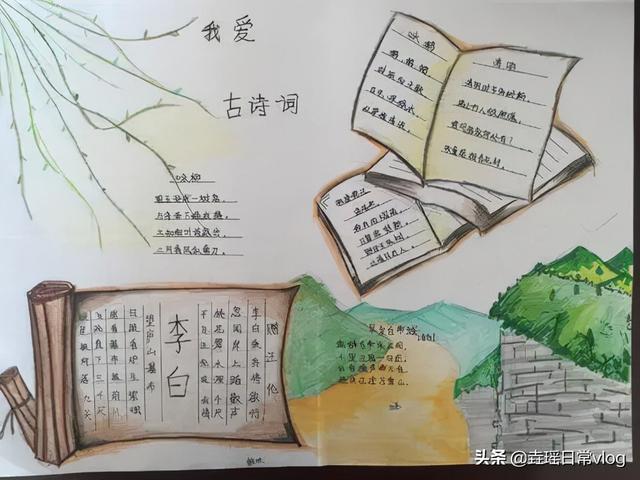 我爱
古诗词
咏柳
碧玉妆成一树高,
万条垂下绿丝绦。
不知细叶谁裁出,
二月春风似剪刀。
咏鹅
鹅,鹅,鹅
曲项向天歌
白毛浮绿水,
红掌拨清波。
清明
清明时节雨纷纷,
路上行人欲断魂。
借问酒家何处有?
牧童遥指杏花村。
赠汪伦
李白乘舟将欲行
忽闻岸上踏歌声
桃花潭水深千尺
不及汪伦送我情
李白
望庐山瀑布
日照香炉生紫烟
遥看瀑布挂前川
飞流直下三千尺
疑是银河落九天
早发白帝城
朝辞白帝彩云间,
千里江陵一日还。
两岸猿声啼不住,
轻舟已过万重山。
头条 @垚瑶日常vlog